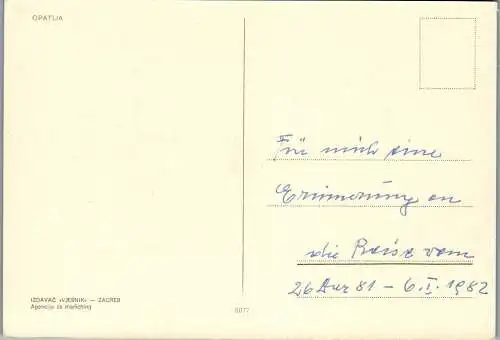 OPATIJA
Für mich eine
Erinnerung an
die Reise vom
26 Dez 81 – 6.I.1982
IZDAVAČ »VJESNIK« — ZAGREB
Agencija za marketing